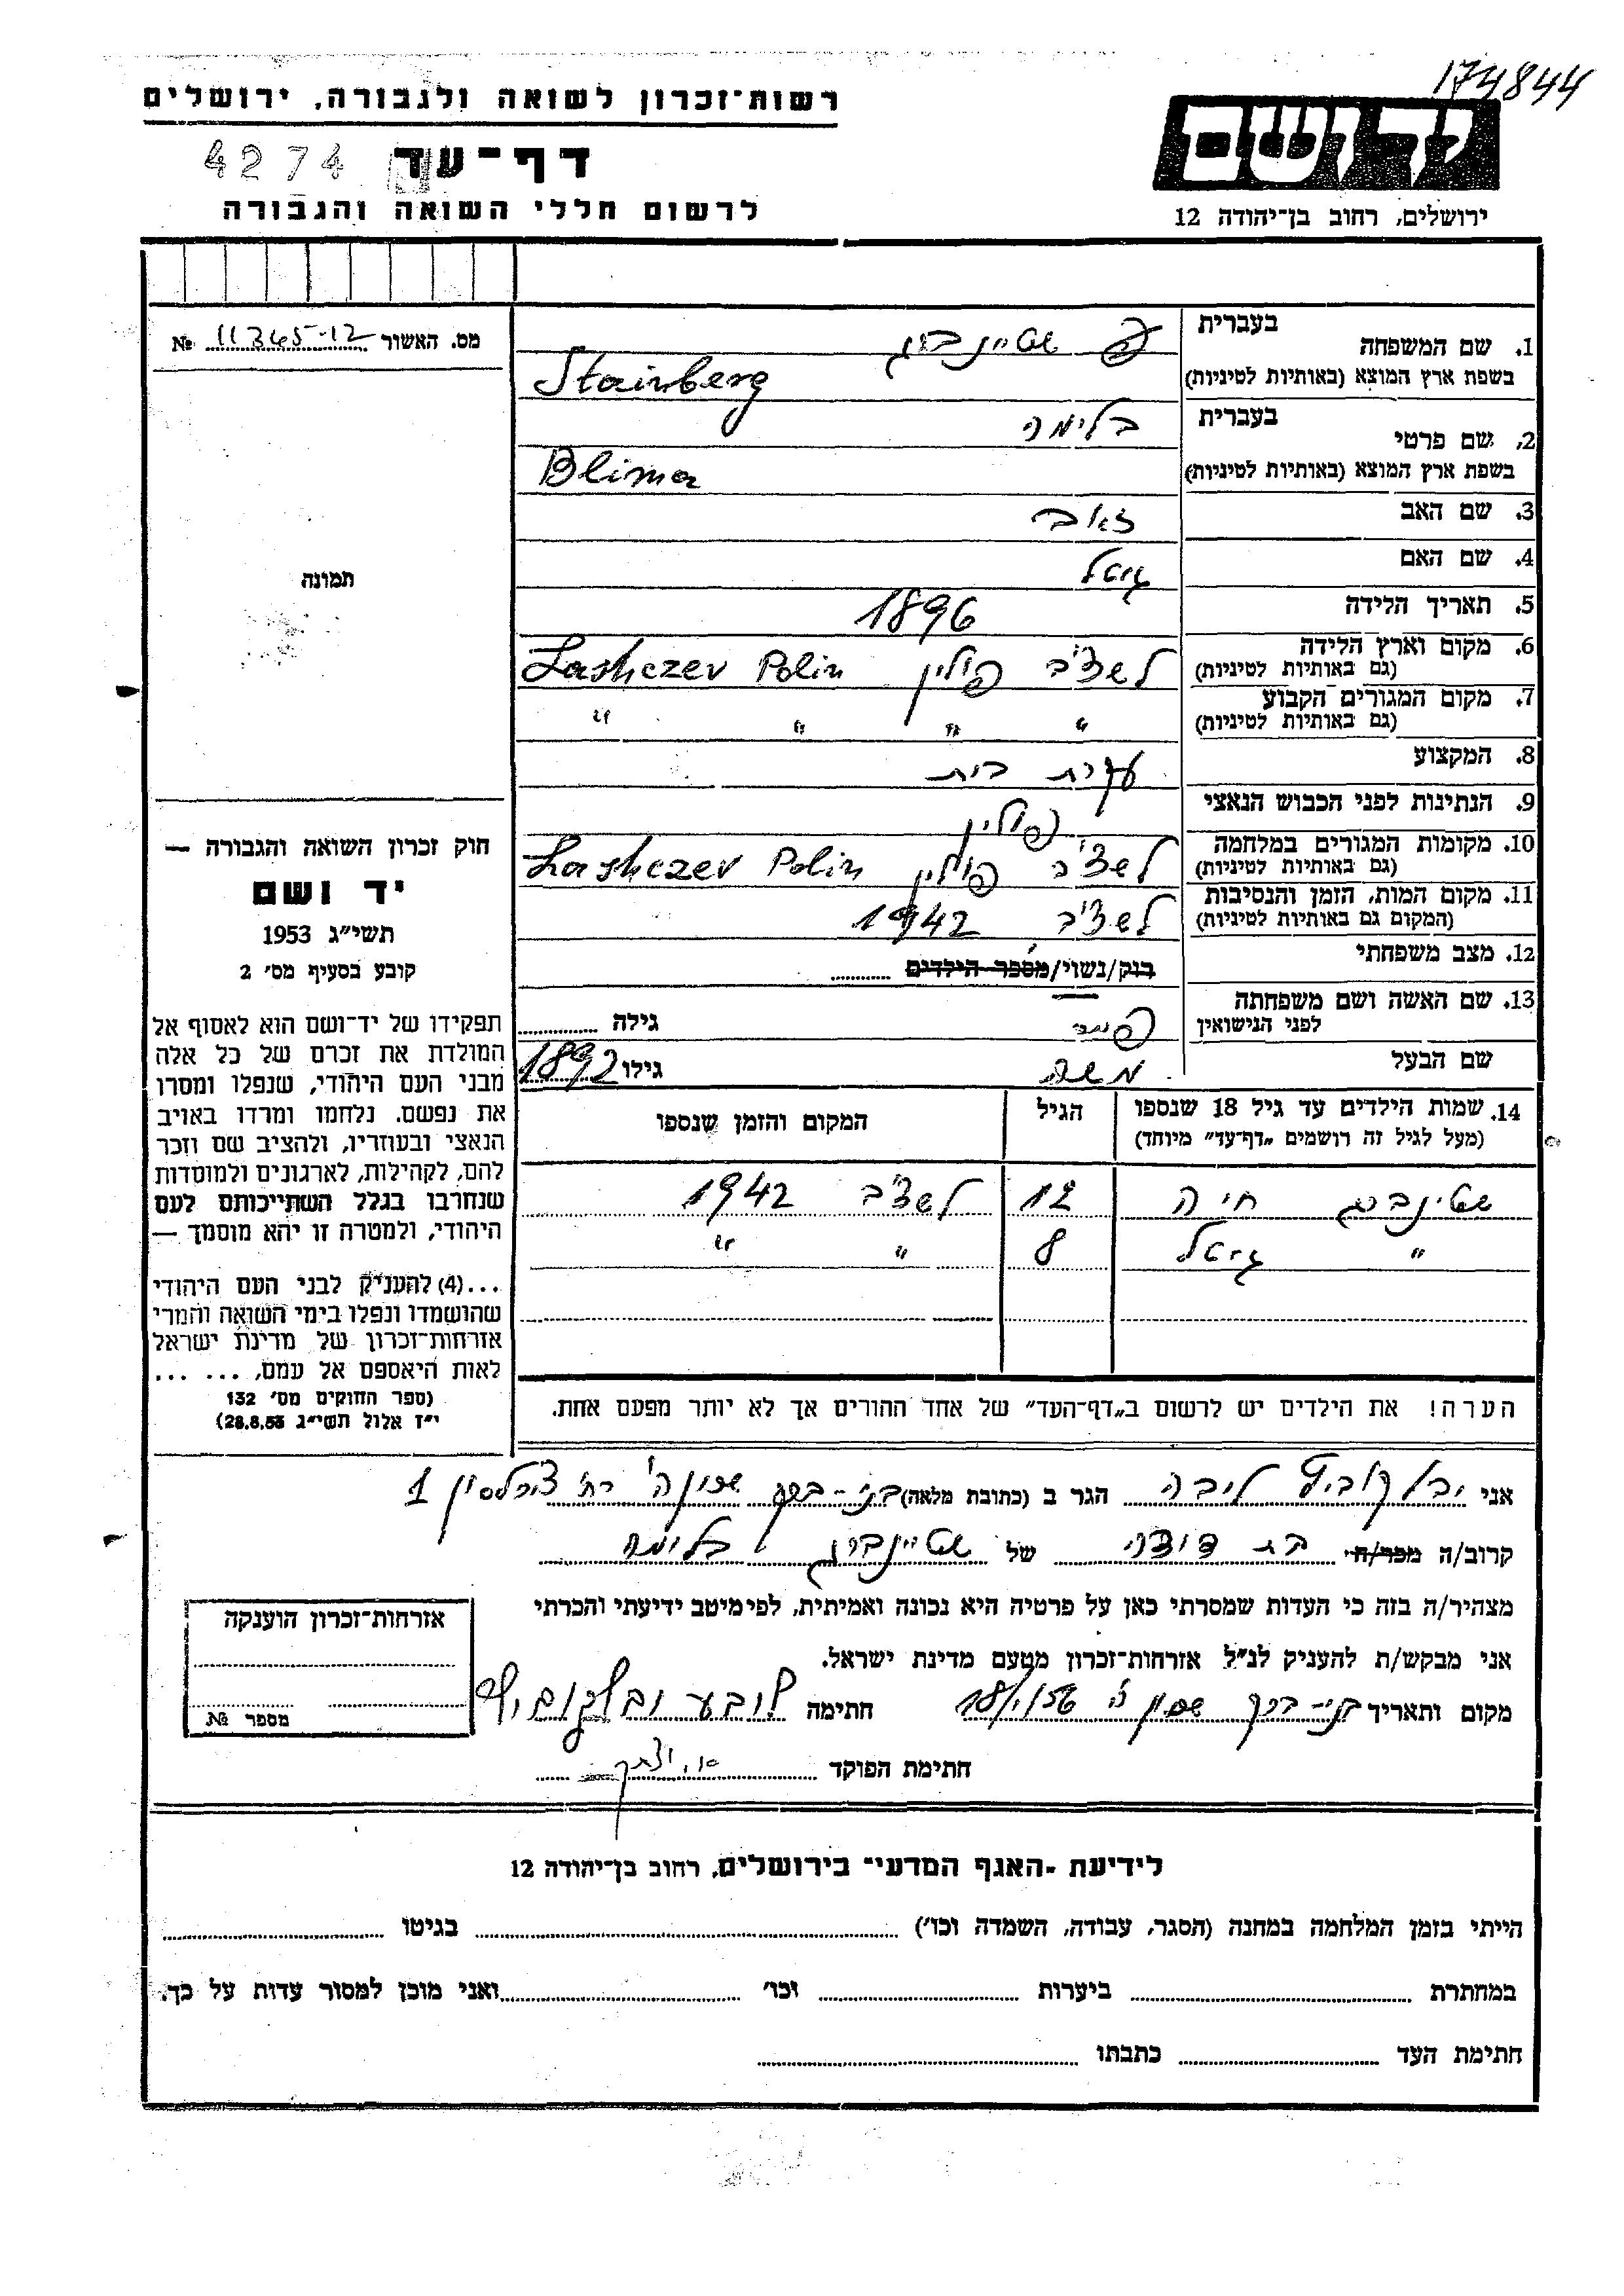 174844
רשות־זכרון לשואה ולגבורה, ירושלים
יד ושם
דף־עד 4274
לרשום חללי השואה והגבורה
ירושלים, רחוב בן־יהודה 12
מס. האשור 11345-12 №
1. שם המשפחה בעברית שטיינברג
בשפת ארץ המוצא (באותיות לטיניות) Stainberg
2. שם פרטי בעברית בלימה
בשפת ארץ המוצא (באותיות לטיניות) Blima
3. שם האב זאב
4. שם האם גיטל
5. תאריך הלידה 1896
6. מקום וארץ הלידה (גם באותיות לטיניות) לשצ'ב פולין Lashczev Polin
7. מקום המגורים הקבוע (גם באותיות לטיניות) " " " "
8. המקצוע עקרת בית
9. הנתינות לפני הכבוש הנאצי פולין
10. מקומות המגורים במלחמה (גם באותיות לטיניות) לשצ'ב פולין Lashczev Polin
11. מקום המות, הזמן והנסיבות (המקום גם באותיות לטיניות) לשצ'ב 1942
12. מצב משפחתי רוק/נשוי/מספר הילדים
13. שם האשה ושם משפחתה לפני הנישואין גילה
שם הבעל משה גילו 1892
תמונה
חוק זכרון השואה והגבורה —
יד ושם
תשי״ג 1953
קובע בסעיף מס׳ 2
תפקידו של יד־ושם הוא לאסוף אל
המולדת את זכרם של כל אלה
מבני העם היהודי, שנפלו ומסרו
את נפשם, נלחמו ומרדו באויב
הנאצי ובעוזריו, ולהציב שם וזכר
להם, לקהילות, לארגונים ולמוסדות
שנחרבו בגלל השתייכותם לעם
היהודי, ולמטרה זו יהא מוסמך —
...(4) להעניק לבני העם היהודי
שהושמדו ונפלו בימי השואה והמרי
אזרחות־זכרון של מדינת ישראל
לאות היאספם אל עמם, ... ...
(ספר החוקים מס׳ 132
י״ז אלול תשי״ג 28.8.53)
14. שמות הילדים עד גיל 18 שנספו הגיל המקום והזמן שנספו
(מעל לגיל זה רושמים „דף־עד״ מיוחד)
שטינברג חיה 12 לשצ'ב 1942
" גיטל 8 " "
הערה! את הילדים יש לרשום ב„דף־העד״ של אחד ההורים אך לא יותר מפעם אחת.
אני ליבה הגר ב (כתובת מלאה) בני-ברק שכון ה' רח' 1
קרוב/ה מכר/ה בת דודה של שטיינברג בלימה
מצהיר/ה בזה כי העדות שמסרתי כאן על פרטיה היא נכונה ואמיתית, לפי מיטב ידיעתי והכרתי
אני מבקש/ת להעניק לנ״ל אזרחות־זכרון מטעם מדינת ישראל.
מקום ותאריך בני-ברק שכון ה' חתימה
חתימת הפוקד
אזרחות־זכרון הוענקה
מספר №
לידיעת ״האגף המדעי״ בירושלים, רחוב בן־יהודה 12
הייתי בזמן המלחמה במחנה (הסגר, עבודה, השמדה וכו׳) בגיטו
במחתרת ביערות וכו׳ ואני מוכן למסור עדות על כך.
חתימת העד כתבתו